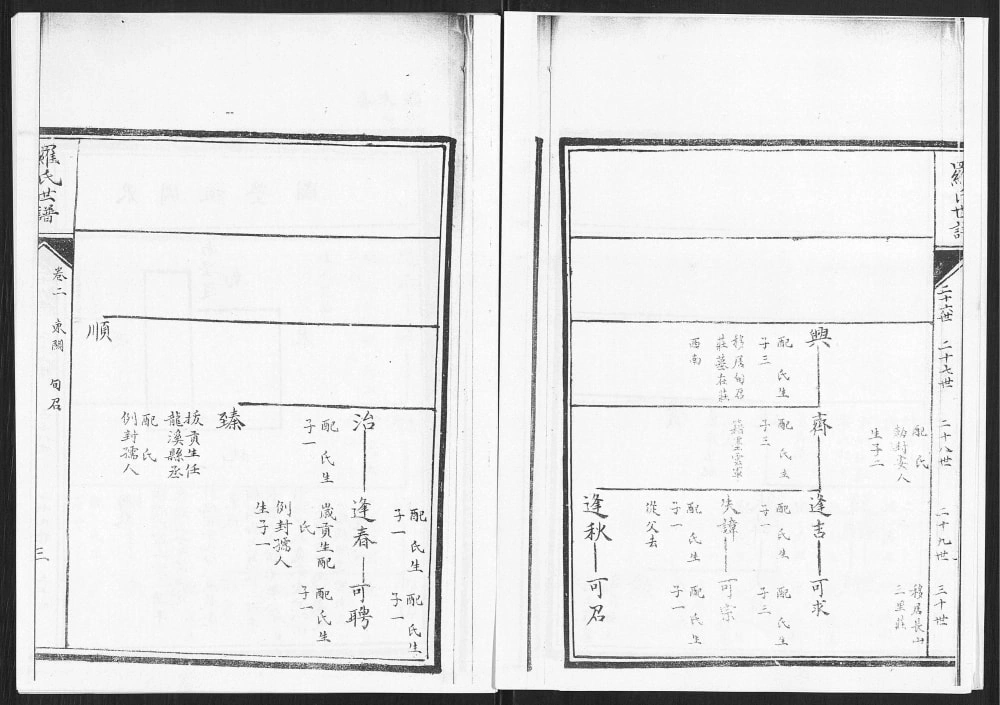 羅氏世譜
二十六世
二十七世
二十八世
二十九世
三十世
配氏
勅封安人
生子二
移居長山
二里莊
興
配氏生
子三
移居旬召
莊墓在莊
西南
齊
配氏生
子三
逢吉
配氏生
子一
可求
配氏生
子三
失諱
配氏生
子一
從父去
可宗
配氏生
子一
逢秋
可召
配氏生
子一
配氏生
子一
治
配氏生
子一
逢春
歲貢生配
氏
例封孺人
生子一
可聘
配氏生
子一
臻
拔貢生任
龍溪縣丞
配氏
例封孺人
順
羅氏世譜
卷二 東關 旬召
三